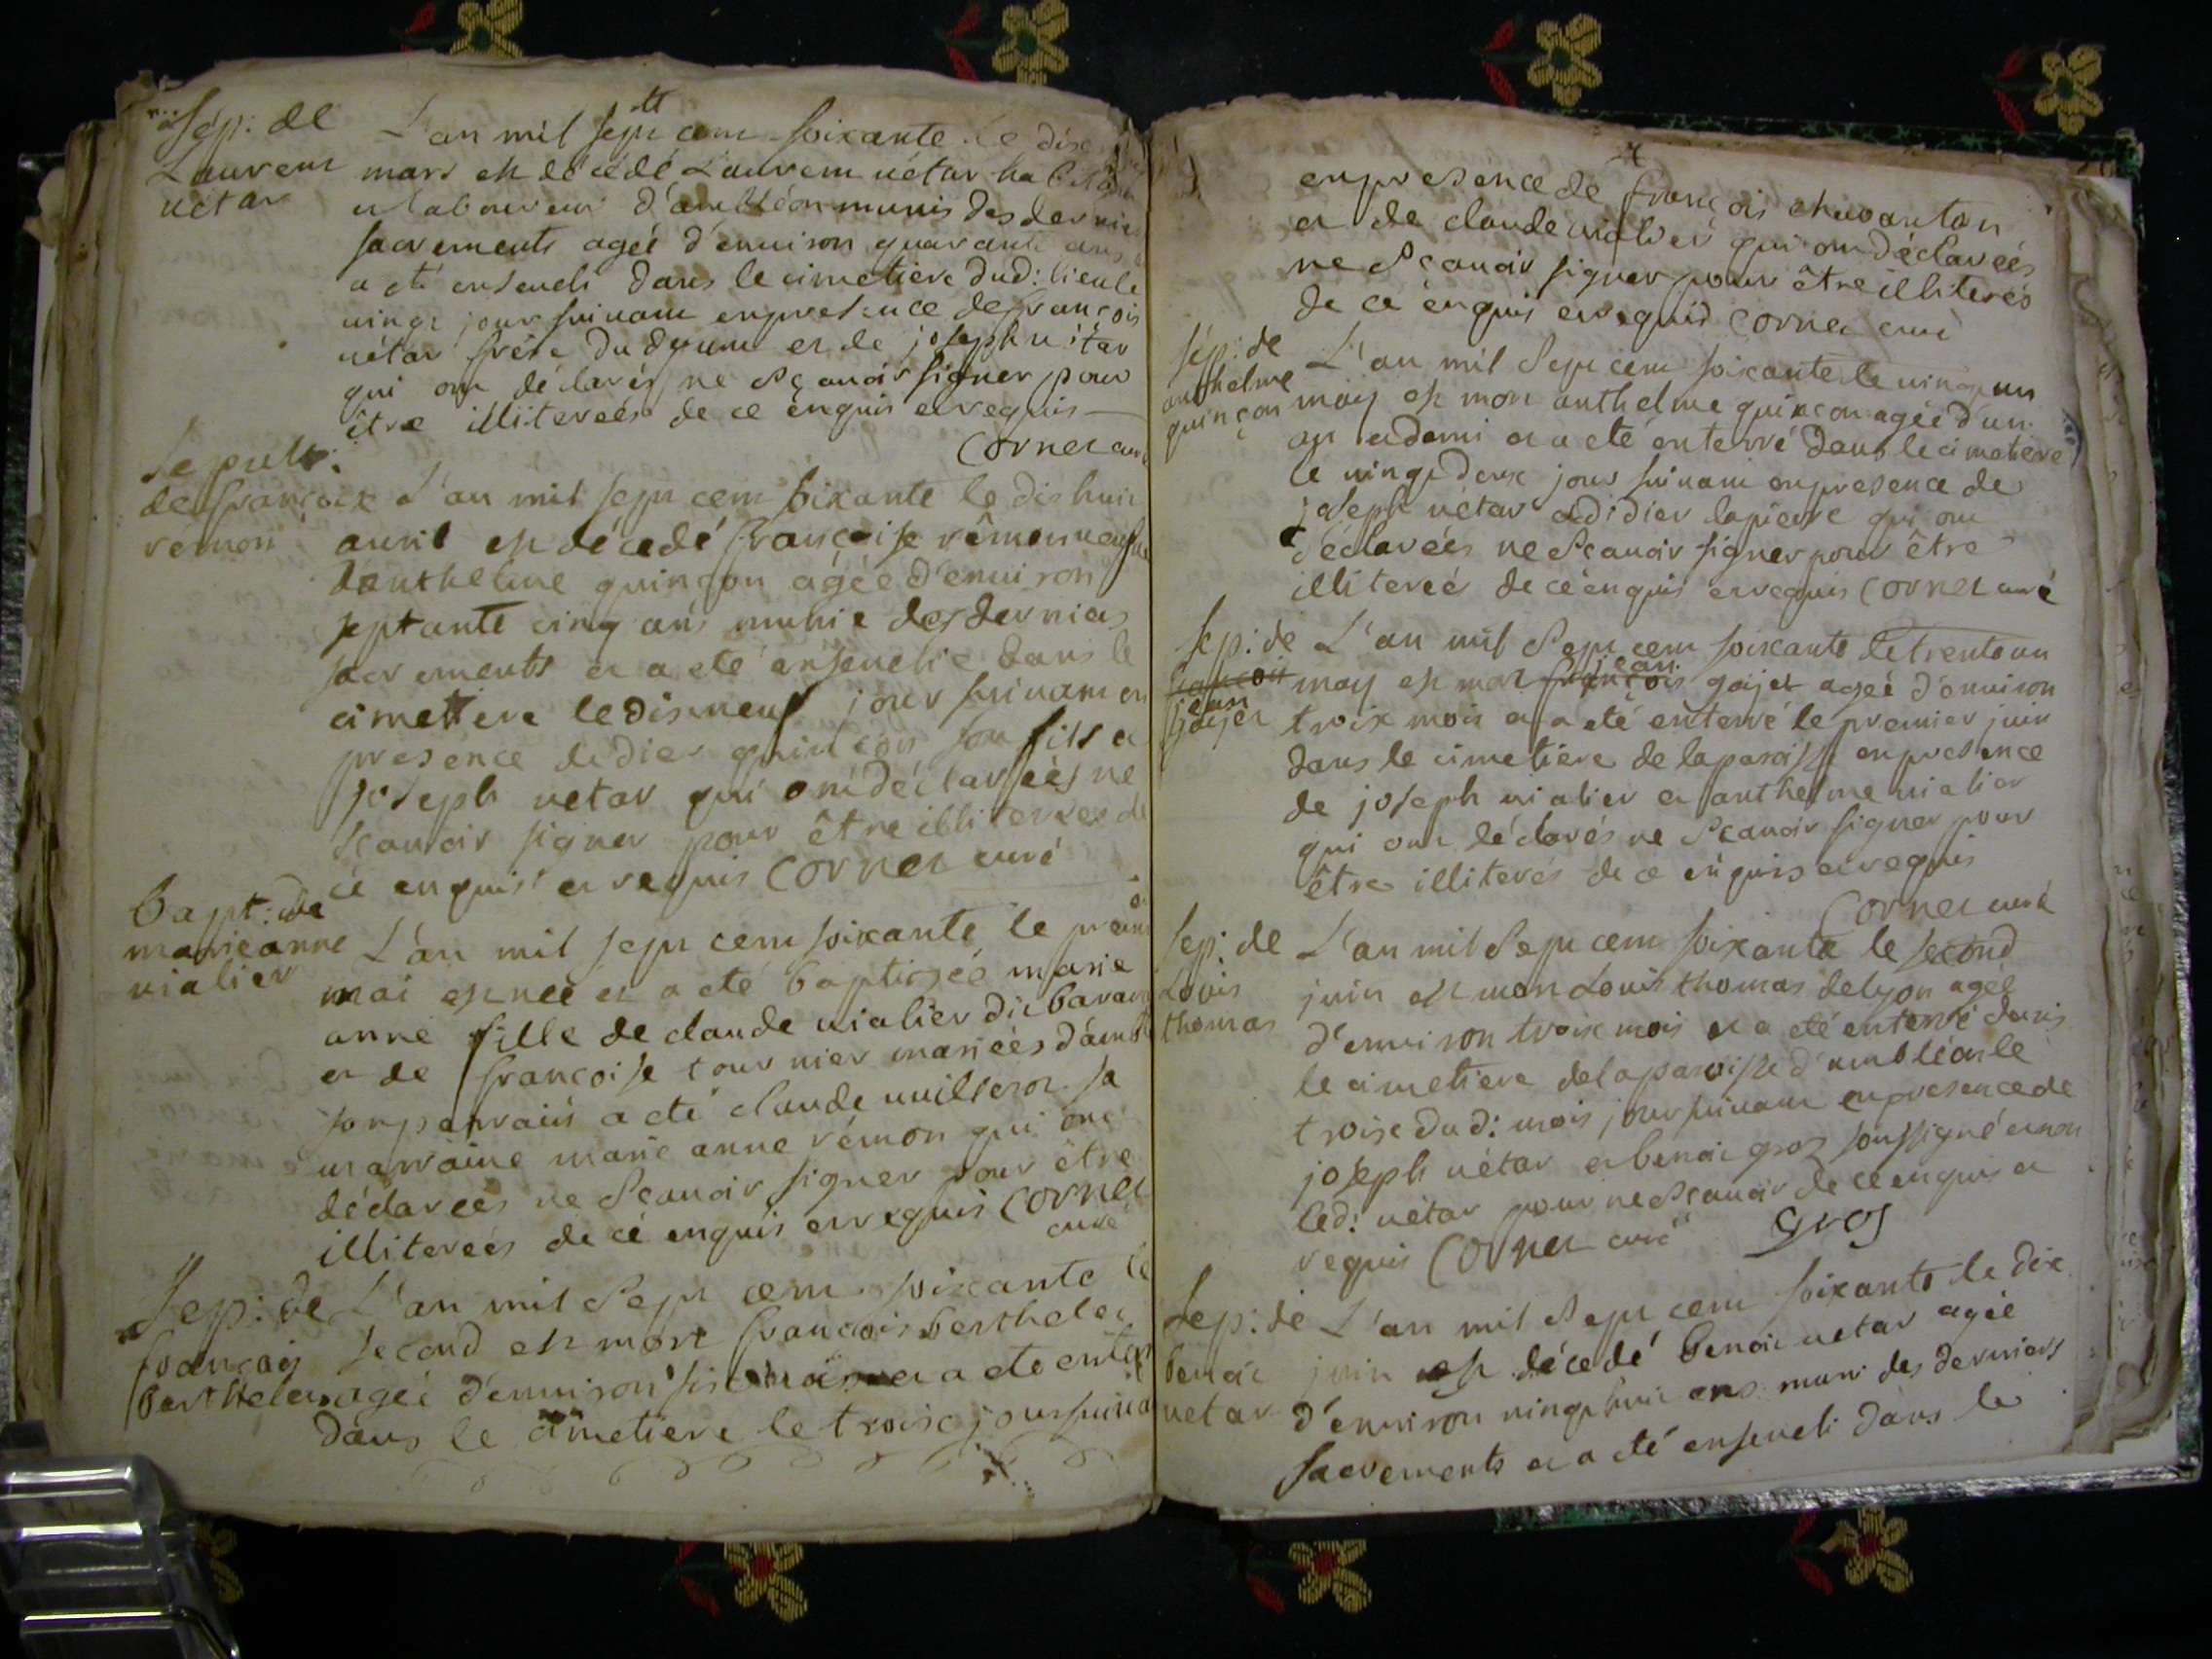 Sép: de
Laurent
uétar
L'an mil sept cent soixante le dix
mars est décédé Laurent uétar habitant
et laboureur d'ambléon munis des dernier
sacrements agée d'enuison quarante ans
a eté enseueli dans le cimetiere dud: lieu le
uingt jour suiuant en presence de françois
uétar frére du defunt et de joseph uétar
qui ont déclarés ne sçauoir signer pour
être illitereés de ce enquis et requis
Cornet curé
Sepult:
de françoise
rémon
L'an mil sept cent soixante le dishuit
auril est décedé françoise rémon ueufue
d'anthelme quinçon agée d'enuison
septante cinq ans munie des derniers
sacrements et a eté enseuelie dans le
cimettiere le disneuf jour suiuant en
presence didier quinçon son fils et
joseph uetar qui ont déclareés ne
sçauoir signer pour être illiterées de
ce enquis et requis Cornet curé
bapt: de
marie anne
uialier
L'an mil sept cent soixante le premier
mai est neé et a eté baptiseé marie
anne fille de claude uialier dit bavard
et de françoise tournier marieés d'amb
son parrain a eté claude uuillerot sa
marraine marie anne rémon qui ont
déclareés ne sçauoir signer pour être
illitereés de cé enquis et requis Cornet
curé
Sep: de
françois
berthelet
L'an mil sept cent soixante le
second est mort françois berthelet
ageé d'enuison six mois et a eté enterré
dans le cimetiere le troisx jour suiuant
en presence de françois chuvanton
et de claude uialier qui ont déclareés
ne sçauoir signer pour être illiterés
de ce enquis et requis Cornet curé
Sép: de
anthelme
quinçon
L'an mil sept cent soixante le uingt un
may est mort anthelme quinçon agée d'un
an et demi et a eté enterré dans le cimetiere
le uingt deux jour suiuant en presence de
joseph uétar et didier lapierre qui ont
déclareés ne sçauoir signer pour être
illitereés de cé enquis et requis Cornet curé
Sep: de
françois
jean
gojet
L'an mil sept cent soixante le trente un
jean
may est mort françois gojet ageé d'enuison
troix mois et a eté enterré le premier juin
dans le cimetiere de la paroisse en presence
de joseph uialier et anthelme uialier
qui ont déclarés ne sçauoir signer pour
être illiterés de ce enquis et requis
Cornet curé
Sep: de
Louis
thomas
L'an mil sept cent soixante le second
juin est mort Louis thomas de lyon ageé
d'enuison troix mois et a eté enterré dans
le cimetiere de la paroisse d'ambléon le
troisx dud: mois jour suiuant en presence de
joseph uétar et benoit gros soussigné et non
led: uétar pour ne sçauoir de ce enquis et
requis Cornet curé gros
Sep: de
benoit
uetar
L'an mil sept cent soixante le dix
juin est décedé benoit uetar ageé
d'enuison uingt huit ans muni des derniers
sacrements et a été enseueli dans le